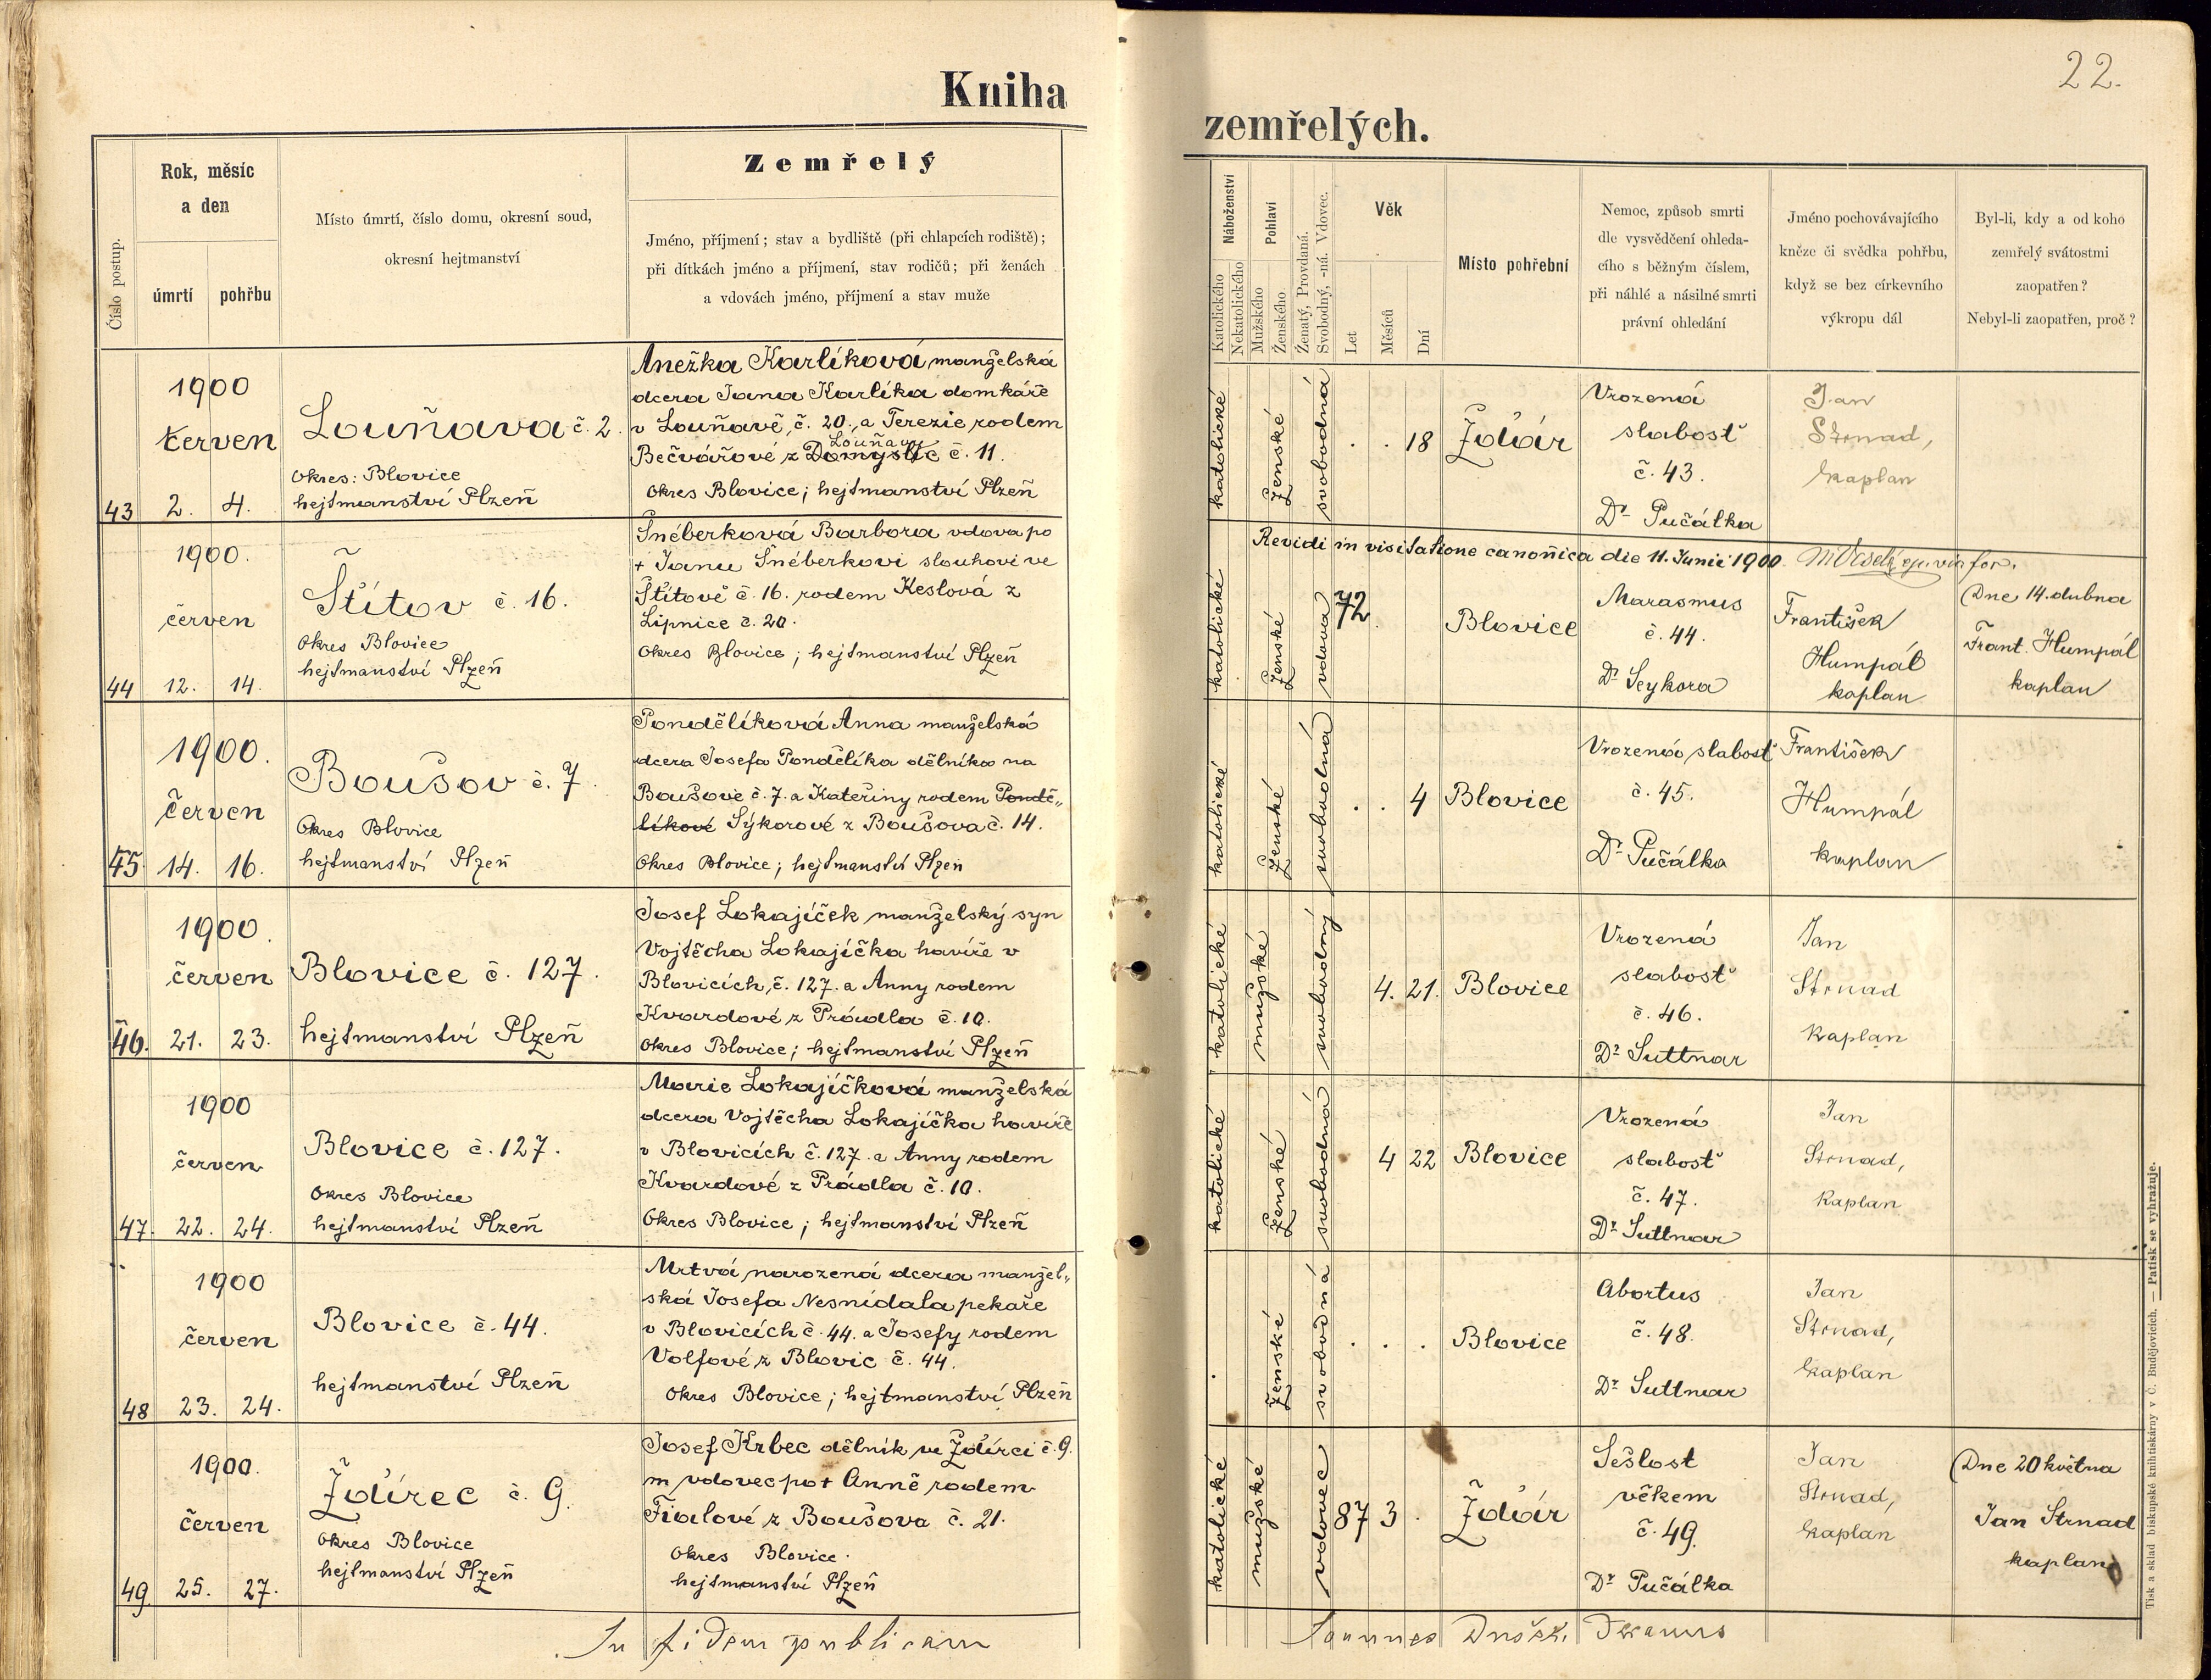 22.
Kniha
zemřelých.
Číslo postup.
Rok, měsíc
a den
úmrtí
pohřbu
Místo úmrtí, číslo domu, okresní soud,
okresní hejtmanství
Zemřelý
Jméno, příjmení; stav a bydliště (při chlapcích rodiště);
při dítkách jméno a příjmení, stav rodičů; při ženách
a vdovách jméno, příjmení a stav muže
Náboženství
Katolického
Nekatolického
Pohlaví
Mužského
Ženského
Ženatý, Provdaná.
Svobodný, -ná. Vdovec.
Věk
Let
Měsíců
Dní
Místo pohřební
Nemoc, způsob smrti
dle vysvědčení ohleda-
cího s běžným číslem,
při náhlé a násilné smrti
právní ohledání
Jméno pochovávajícího
kněze či svědka pohřbu,
když se bez církevního
výkropu dál
Byl-li, kdy a od koho
zemřelý svátostmi
zaopatřen?
Nebyl-li zaopatřen, proč?
43
1900
červen
2. 4.
Louňava č. 2.
Okres: Blovice
hejtmanství Plzeň
Anežka Karlíková manželská
dcera Jana Karlíka domkáře
v Louňavě, č. 20., a Terezie rodem
Louňavy
Bečvářové z Domyslic č. 11.
Okres Blovice; hejtmanství Plzeň
katolické
ženské
svobodná
. . 18
Žďár
Vrozená
slabosť
č. 43.
Dr Pučálka
Jan
Strnad,
kaplan
Revidi in visitatione canonica die 11. Junii 1900.
44
1900.
červen
12. 14.
Štítov č. 16.
Okres Blovice
hejtmanství Plzeň
Šnéberková Barbora vdova po
+ Janu Šnéberkovi slouhovi ve
Štítově č. 16. rodem Keslová z
Lipnice č. 20.
Okres Blovice; hejtmanství Plzeň
katolické
ženské
vdova
72.
Blovice
Marasmus
č. 44.
Dr Seykora
František
Humpál
kaplan
Dne 14. dubna
Frant. Humpál
kaplan
45
1900.
červen
14. 16.
Boušov č. 7.
Okres Blovice
hejtmanství Plzeň
Pondělíková Anna manželská
dcera Josefa Pondělíka dělníka na
Boušově č. 7. a Kateřiny rodem Pondě„
líkové Sýkorové z Boušova č. 14.
Okres Blovice; hejtmanství Plzeň
katolické
ženské
svobodná
. . 4
Blovice
Vrozená slabosť
č. 45.
Dr Pučálka
František
Humpál
kaplan
46.
1900.
červen
21. 23.
Blovice č. 127.
hejtmanství Plzeň
Josef Lokajíček manželský syn
Vojtěcha Lokajíčka havíře v
Blovicích, č. 127. a Anny rodem
Kvardové z Prádla č. 10.
Okres Blovice; hejtmanství Plzeň
katolické
mužské
svobodný
4. 21.
Blovice
Vrozená
slabosť
č. 46.
Dr Suttnar
Jan
Strnad
kaplan
47.
1900
červen
22. 24.
Blovice č. 127.
Okres Blovice
hejtmanství Plzeň
Marie Lokajíčková manželská
dcera Vojtěcha Lokajíčka havíře
v Blovicích č. 127. a Anny rodem
Kvardové z Prádla č. 10.
Okres Blovice; hejtmanství Plzeň
katolické
ženské
svobodná
. 4 22
Blovice
Vrozená
slabosť
č. 47.
Dr Suttnar
Jan
Strnad,
kaplan
48
1900
červen
23. 24.
Blovice č. 44.
hejtmanství Plzeň
Mrtvá narozená dcera manžel„
ská Josefa Nesnídala pekaře
v Blovicích č. 44. a Josefy rodem
Volfové z Blovic č. 44.
Okres Blovice; hejtmanství Plzeň
.
ženské
svobodná
. . .
Blovice
Abortus
č. 48.
Dr Suttnar
Jan
Strnad,
kaplan
49
1900.
červen
25. 27.
Ždírec č. 9.
Okres Blovice
hejtmanství Plzeň
Josef Krbec dělník ve Ždírci č. 9.
m vdovec po + Anně rodem
Fialové z Boušova č. 21.
Okres Blovice.
hejtmanství Plzeň
katolické
mužské
vdovec
87 3 .
Žďár
Sešlost
věkem
č. 49.
Dr Pučálka
Jan
Strnad,
kaplan
Dne 20 května
Jan Strnad
kaplan
In fidem publicam
Joannes
Tisk a sklad biskupské knihtiskárny v Č. Budějovicích. — Patisk se vyhražuje.